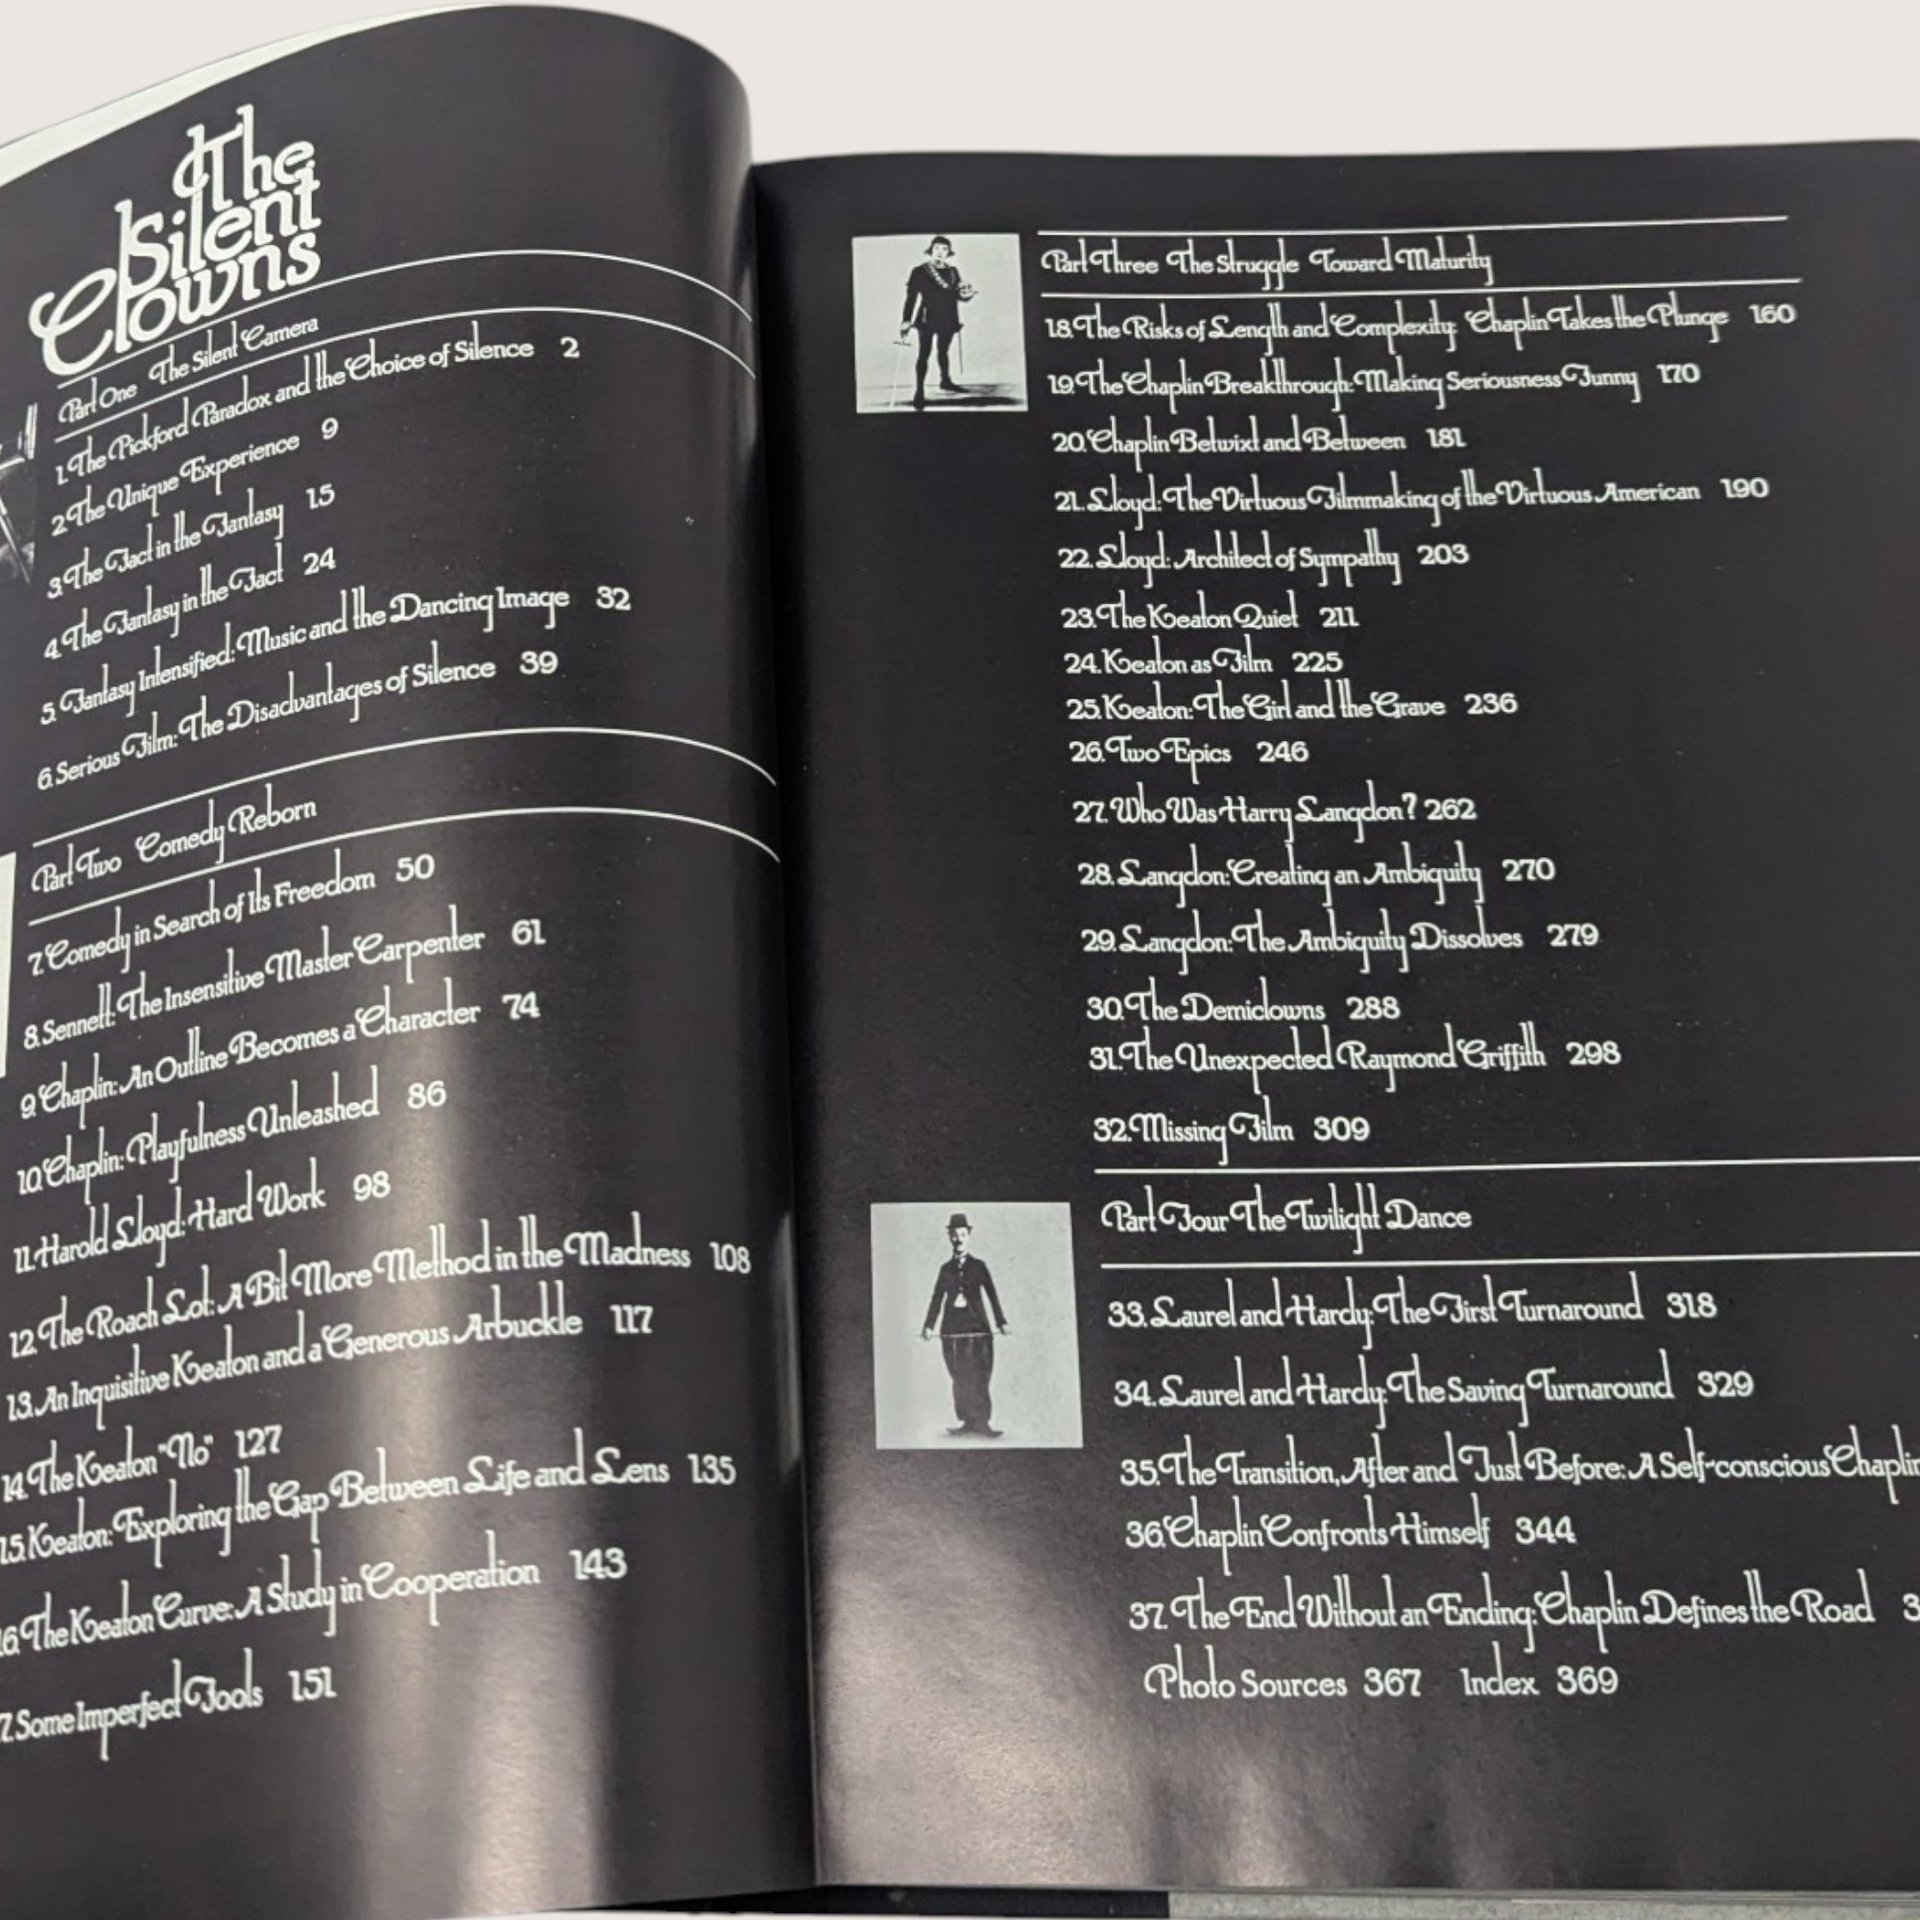 The
Silent
Clowns
Part One The Silent Camera
1. The Pickford Paradox and the Choice of Silence 2
2. The Unique Experience 9
3. The Fact in the Fantasy 15
4. The Fantasy in the Fact 24
5. Fantasy Intensified: Music and the Dancing Image 32
6. Serious Film: The Disadvantages of Silence 39
Part Two Comedy Reborn
7. Comedy in Search of Its Freedom 50
8. Sennett: The Insensitive Master Carpenter 61
9. Chaplin: An Outline Becomes a Character 74
10. Chaplin: Playfulness Unleashed 86
11. Harold Lloyd: Hard Work 98
12. The Roach Lot: A Bit More Method in the Madness 108
13. An Inquisitive Keaton and a Generous Arbuckle 117
14. The Keaton "No" 127
15. Keaton: Exploring the Gap Between Life and Lens 135
6. The Keaton Curve: A Study in Cooperation 143
7. Some Imperfect Fools 151
Part Three The Struggle Toward Maturity
18. The Risks of Length and Complexity: Chaplin Takes the Plunge 160
19. The Chaplin Breakthrough: Making Seriousness Funny 170
20. Chaplin Betwixt and Between 181
21. Lloyd: The Virtuous Filmmaking of the Virtuous American 190
22. Lloyd: Architect of Sympathy 203
23. The Keaton Quiet 211
24. Keaton as Film 225
25. Keaton: The Girl and the Grave 236
26. Two Epics 246
27. Who Was Harry Langdon? 262
28. Langdon: Creating an Ambiguity 270
29. Langdon: The Ambiguity Dissolves 279
30. The Demiclowns 288
31. The Unexpected Raymond Griffith 298
32. Missing Film 309
Part Four The Twilight Dance
33. Laurel and Hardy: The First Turnaround 318
34. Laurel and Hardy: The Saving Turnaround 329
35. The Transition, After and Just Before: A Self-conscious Chaplin
36. Chaplin Confronts Himself 344
37. The End Without an Ending: Chaplin Defines the Road
Photo Sources 367 Index 369